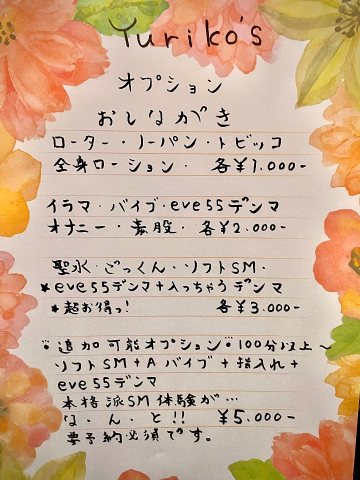 Yuriko's
オプション
おしながき
ローター・ノーパン・トビッコ
全身ローション・ 各¥1.000-
イラマ・バイブ・eve55デンマ
オナニー・素股・各¥2.000-
聖水・ごっくん・ソフトSM・
★eve55デンマ+入っちゃうデンマ
★超お得っ! 各¥3.000-
追加可能オプション 100分以上~
ソフトSM+Aバイブ+指入れ+
eve55デンマ
本格派SM体験が…
な・ん・と!! ¥5.000-
要予約必須です。